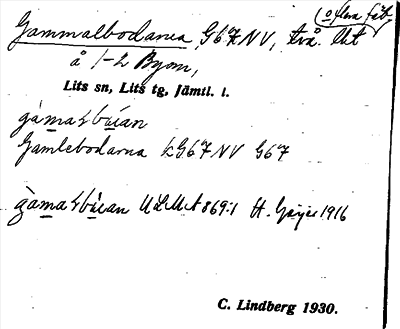 (o) flera fäb.
Gammalbodarna G67NV, två. Lit
å 1-2 Byom,
Lits sn, Lits tg, Jämtl. l.
gàmaɫbúan
Gamlebodarna kG67NV G67
gàmaɫbúan ULMA 869:1 H. Geijer 1916
C. Lindberg 1930.